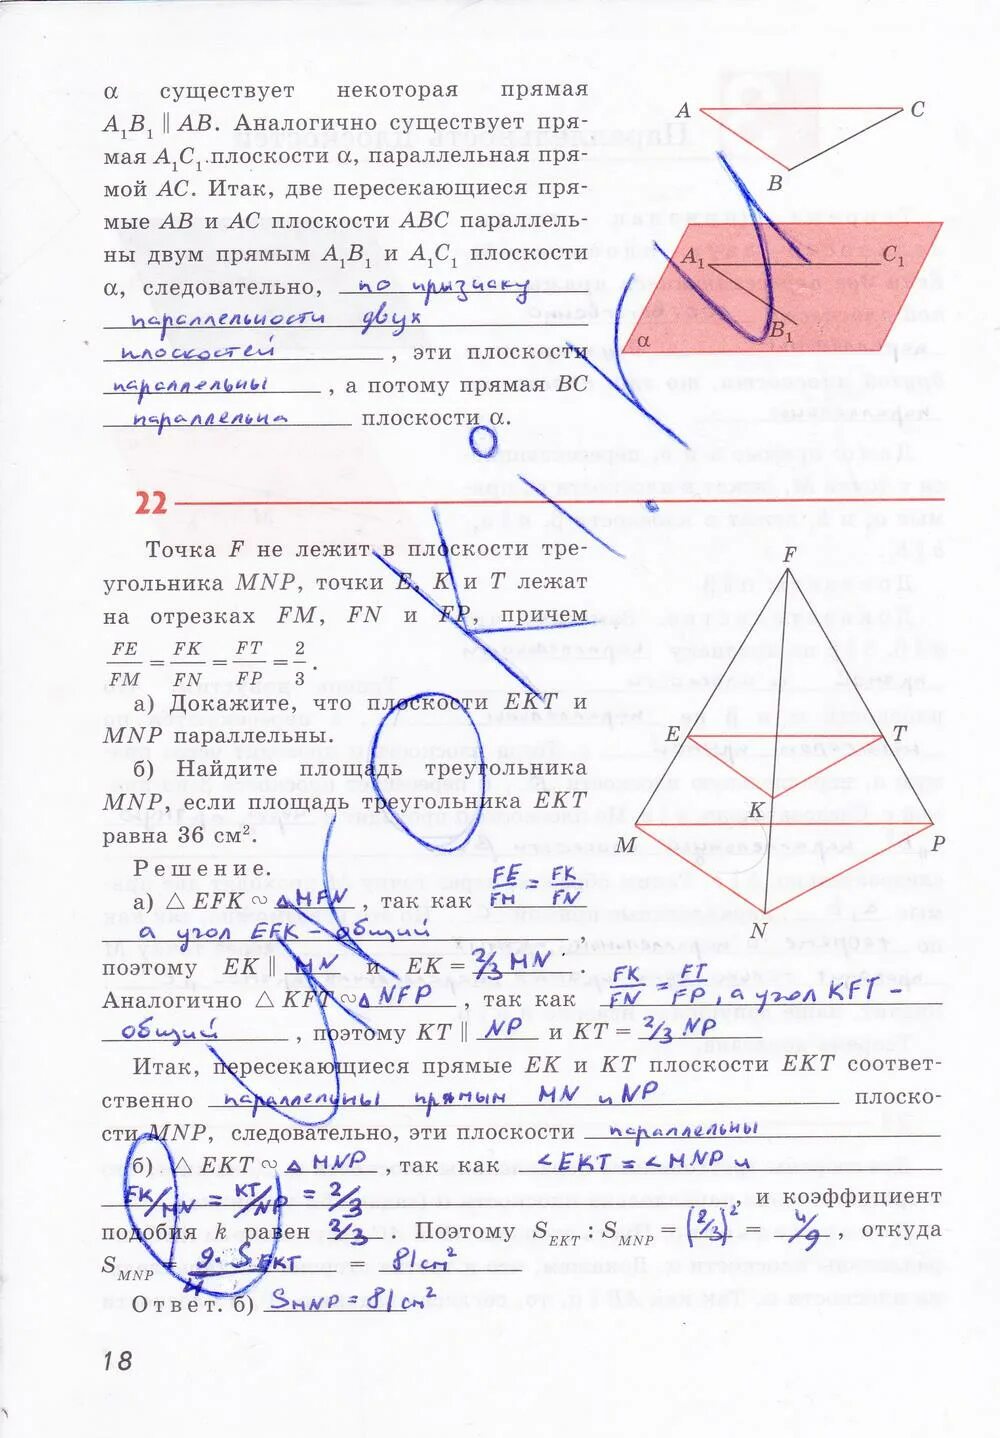 α существует некоторая прямая
A₁B₁ || AB. Аналогично существует пря-
мая A₁C₁ плоскости α, параллельная пря-
мой AC. Итак, две пересекающиеся пря-
мые AB и AC плоскости ABC параллель-
ны двум прямым A₁B₁ и A₁C₁ плоскости
α, следовательно, по прызнаку
параллельности двух
плоскостей, эти плоскости
параллельны, а потому прямая BC
параллельна плоскости α.
A
C
B
A₁
C₁
B₁
α
22
Точка F не лежит в плоскости тре-
угольника MNP, точки E, K и T лежат
на отрезках FM, FN и FP, причем
FE/FM = FK/FN = FT/FP = 2/3.
а) Докажите, что плоскости EKT и
MNP параллельны.
б) Найдите площадь треугольника
MNP, если площадь треугольника EKT
равна 36 см².
F
E
T
K
M
P
N
Решение.
а) △ EFK ∾ △MFN, так как FE/FM = FK/FN
а угол EFK - общий,
поэтому EK || MN и EK = 2/3 MN.
Аналогично △ KFT ∾ △NFP, так как FK/FN = FT/FP, а угол KFT -
общий, поэтому KT || NP и KT = 2/3 NP
Итак, пересекающиеся прямые EK и KT плоскости EKT соответ-
ственно параллельны прямым MN и NP плоско-
сти MNP, следовательно, эти плоскости параллельны
б) △ EKT ∾ △ MNP, так как <EKT = <MNP и
FK/MN = KT/NP = 2/3 и коэффициент
подобия k равен 2/3. Поэтому S EKT : S MNP = (2/3)² = 4/9 откуда
S MNP = 9·S EKT/4 = 81 см²
Ответ. б) S MNP = 81 см²
18